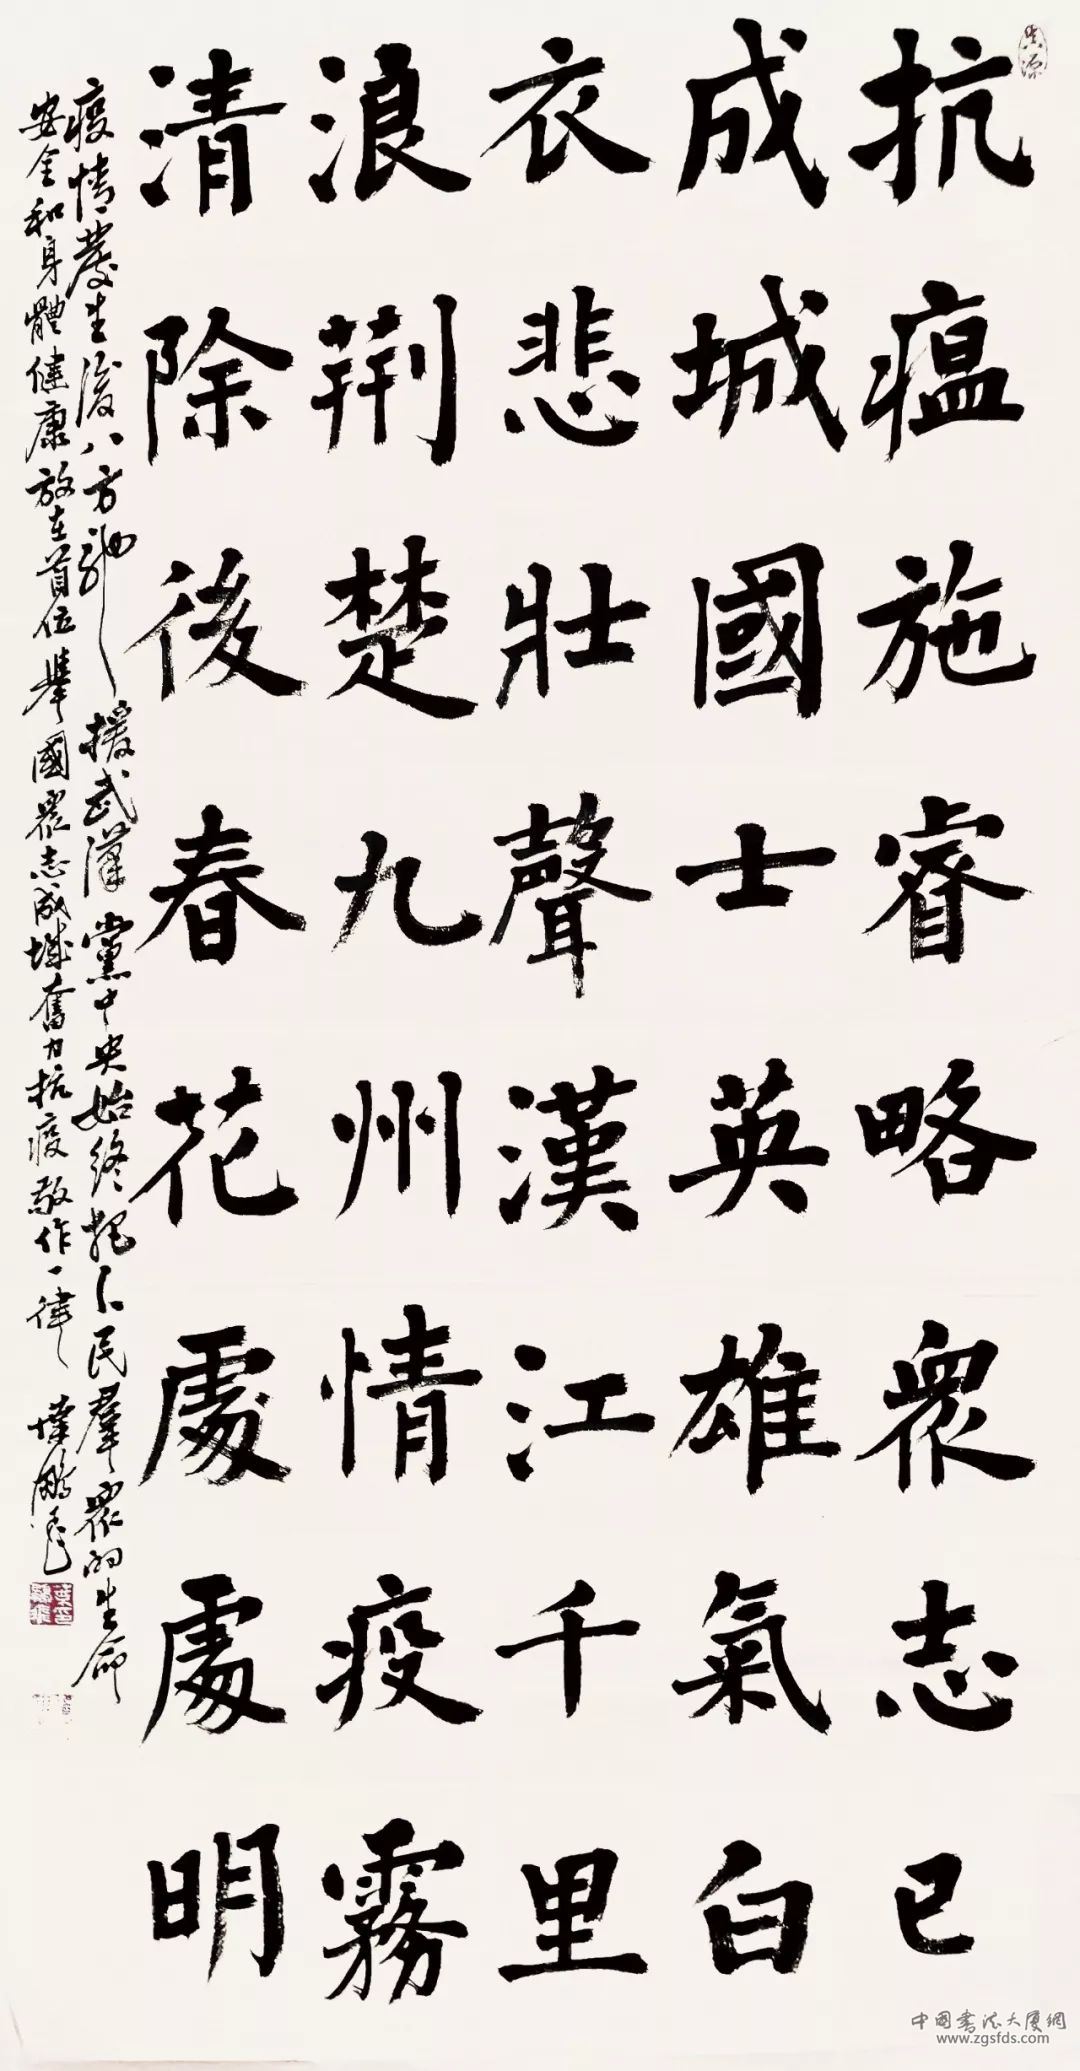 抗瘟施睿略衆志已
成城國士英雄氣白
衣悲壯聲漢江千里
浪荆楚九州情疫霧
清除後春花處處明
疫情發生後八方馳援武漢黨中央始終把人民羣衆的生命
安全和身體健康放在首位舉國衆志成城奮力抗疫敬作一律
中国书法大厦網
www.zgsfds.com